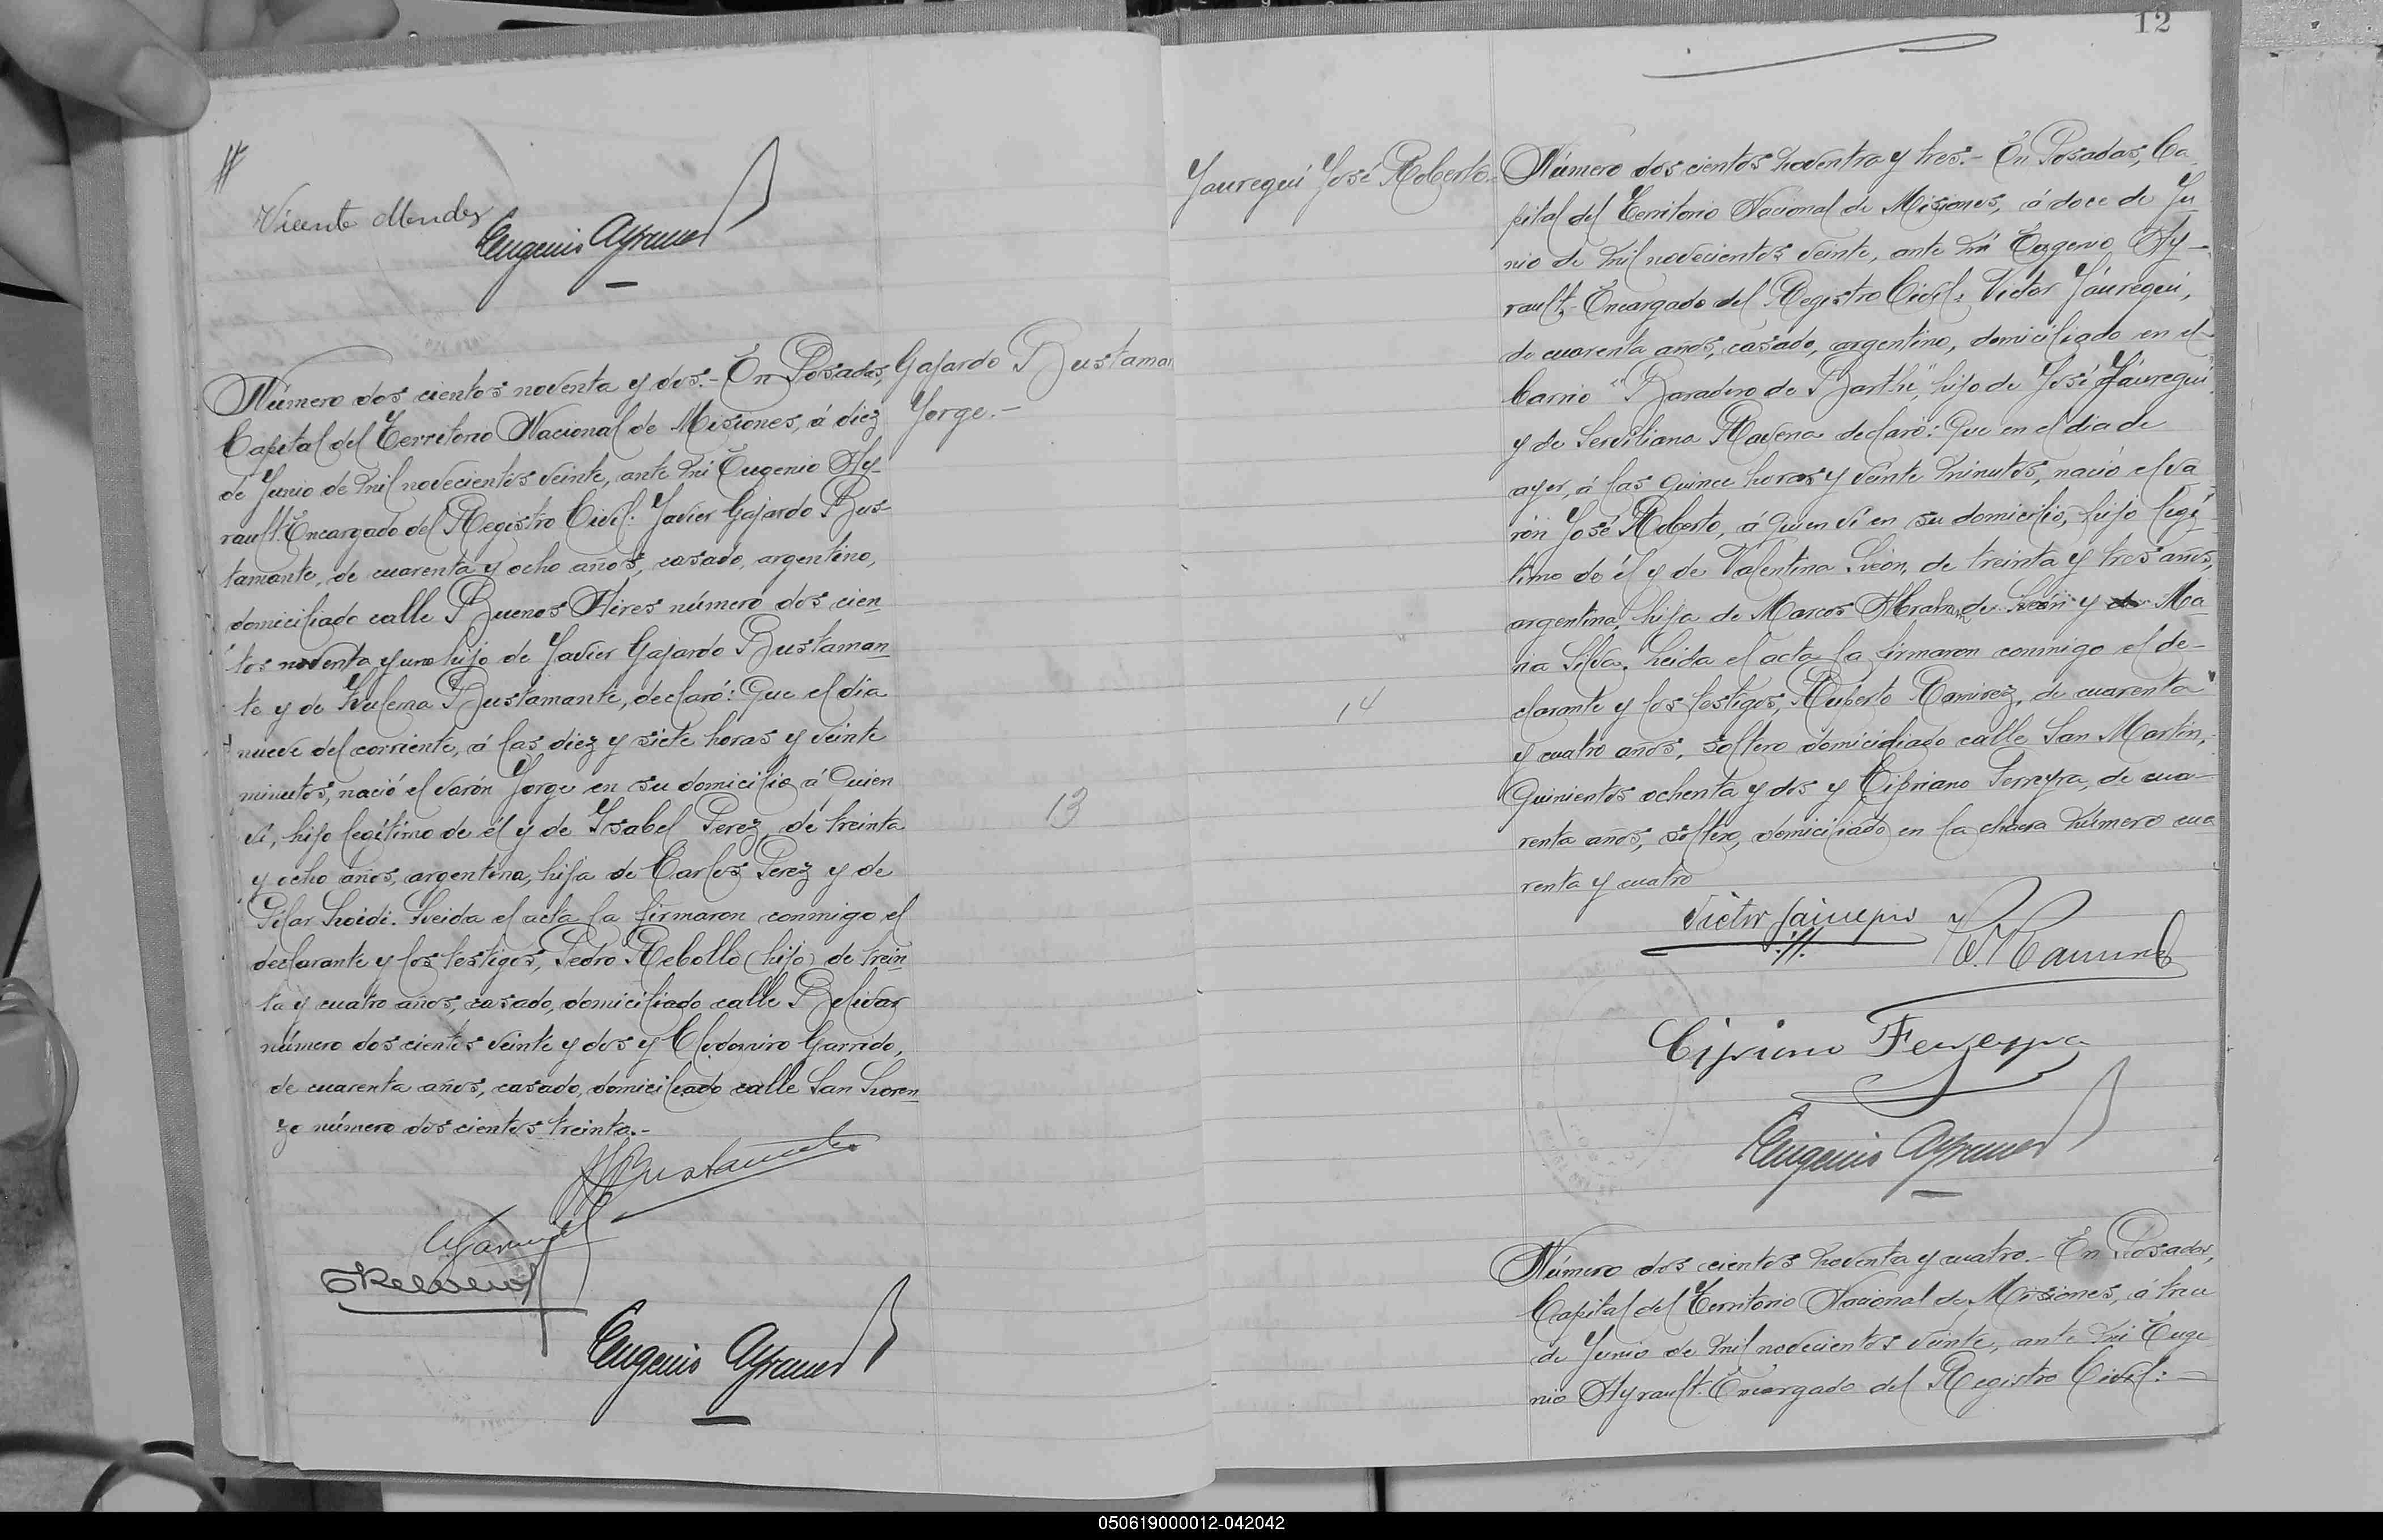 Vicente Mendez
Eugenio Ayrault
Número dos cientos noventa y dos.- En Posadas,
Capital del Territorio Nacional de Misiones, á diez
de Junio de mil novecientos veinte, ante mi Eugenio Ay-
rault. Encargado del Registro Civil: Javier Gajardo Bus-
tamante, de cuarenta y ocho años, casado, argentino,
domiciliado calle Buenos Aires número dos cien
tos noventa y uno hijo de Javier Gajardo Bustaman
te y de Zulema Bustamante, declaró: Que el día
nueve del corriente, á las diez y siete horas y veinte
minutos, nació el varón Jorge en su domicilio á quien
ví, hijo legítimo de él y de Ysabel Perez, de treinta
y ocho años, argentina, hija de Carlos Perez y de
Pilar Loidi. Leida el acta la firmaron conmigo el
declarante y los testigos, Pedro Rebollo (hijo) de trein
ta y cuatro años, casado, domiciliado calle Bolivar
número dos cientos veinte y dos y Clodomiro Garrido,
de cuarenta años, casado, domiciliado calle San Loren
zo número dos cientos treinta.-
Gajardo Bustaman
Jorge.-
13
Bustamante
Eugenio Ayrault
12
Jauregui José Roberto.-
Número dos cientos noventa y tres.- En Posadas, Ca
pital del Territorio Nacional de Misiones, á doce de Ju
nio de mil novecientos veinte, ante mi Eugenio Ay-
rault,- Encargado del Registro Civil: Victor Jáuregui,
de cuarenta años, casado, argentino, domiciliado en el
barrio "Baradero de Barthe", hijo de José Jáuregui
y de Serviliana Ravena declaró: Que en el dia de
ayer, á las quince horas y veinte minutos, nació el va
rón José Roberto, á quien ví en su domicilio, hijo legí
timo de él y de Valentina León, de treinta y tres años,
argentina, hija de Marcos de León y Ma
ria Silva. Leida el acta la firmaron conmigo el de-
clarante y los testigos, Ruperto Ramirez, de cuarenta
y cuatro años, soltero domiciliado calle San Martin,
quinientos ochenta y dos y Cipriano Ferreyra, de cua-
renta años, soltero, domiciliado en la chacra número cua
renta y cuatro
14
Victor Jáuregui
R. Ramirez
Cipriano Ferreyra
Eugenio Ayrault
Número dos cientos noventa y cuatro.- En Posadas,
Capital del Territorio Nacional de Misiones, á trece
de Junio de mil novecientos veinte, ante mi Euge
nio Ayrault. Encargado del Registro Civil:-
050619000012-042042